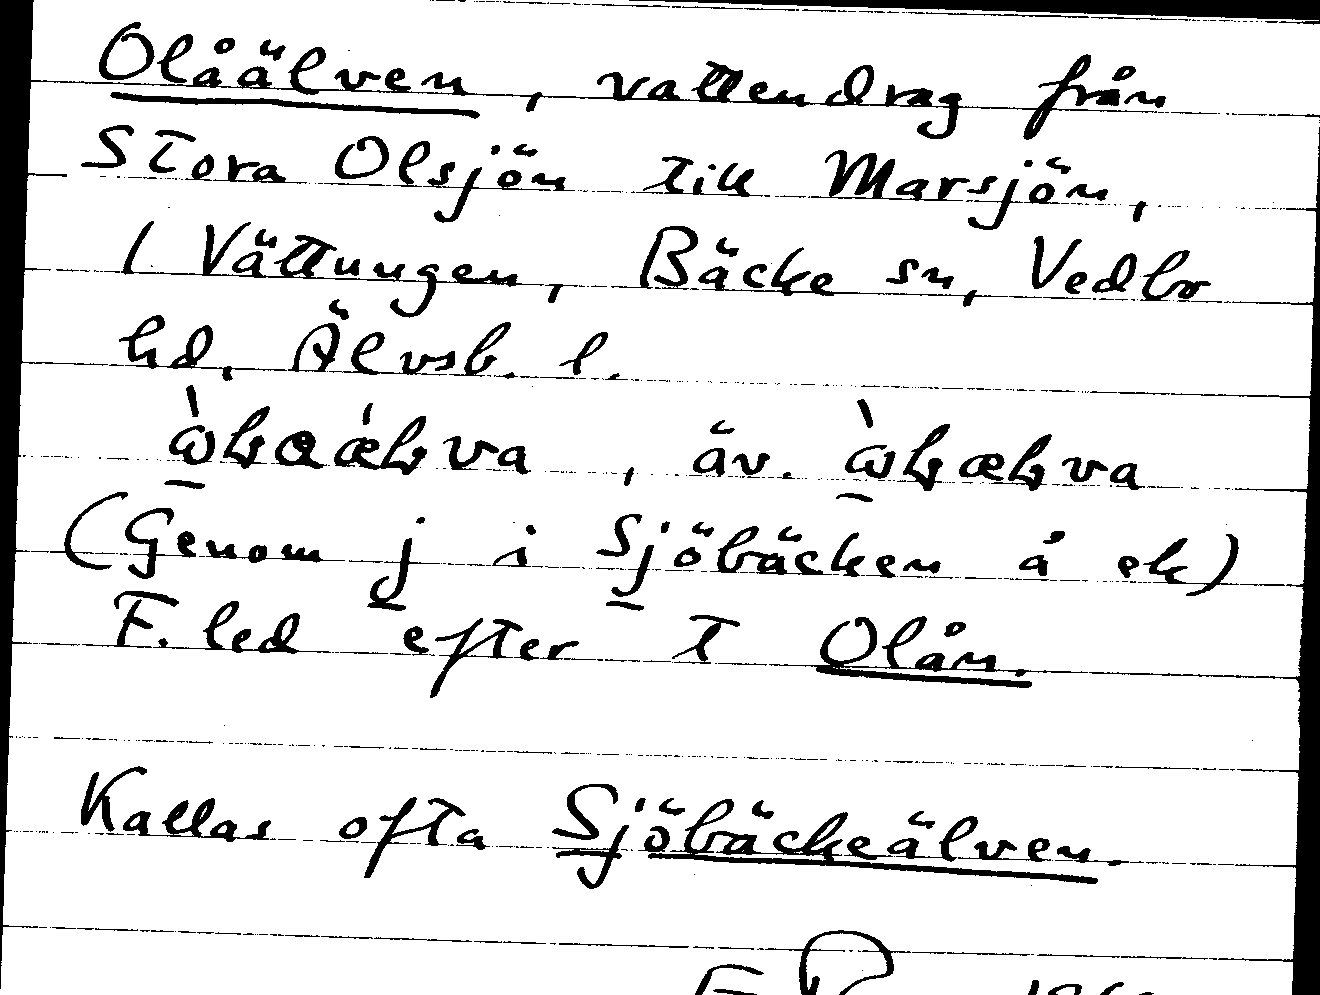 Olåälven, vattendrag från
Stora Olsjön till Marsjön,
l Vättungen, Bäcke sn, Vedbo
hd, Älvsb. l.
, äv.
(Genom j i Sjöbäcken å ek)
F. led efter t Olån.
Kallas ofta Sjöbäckeälven.